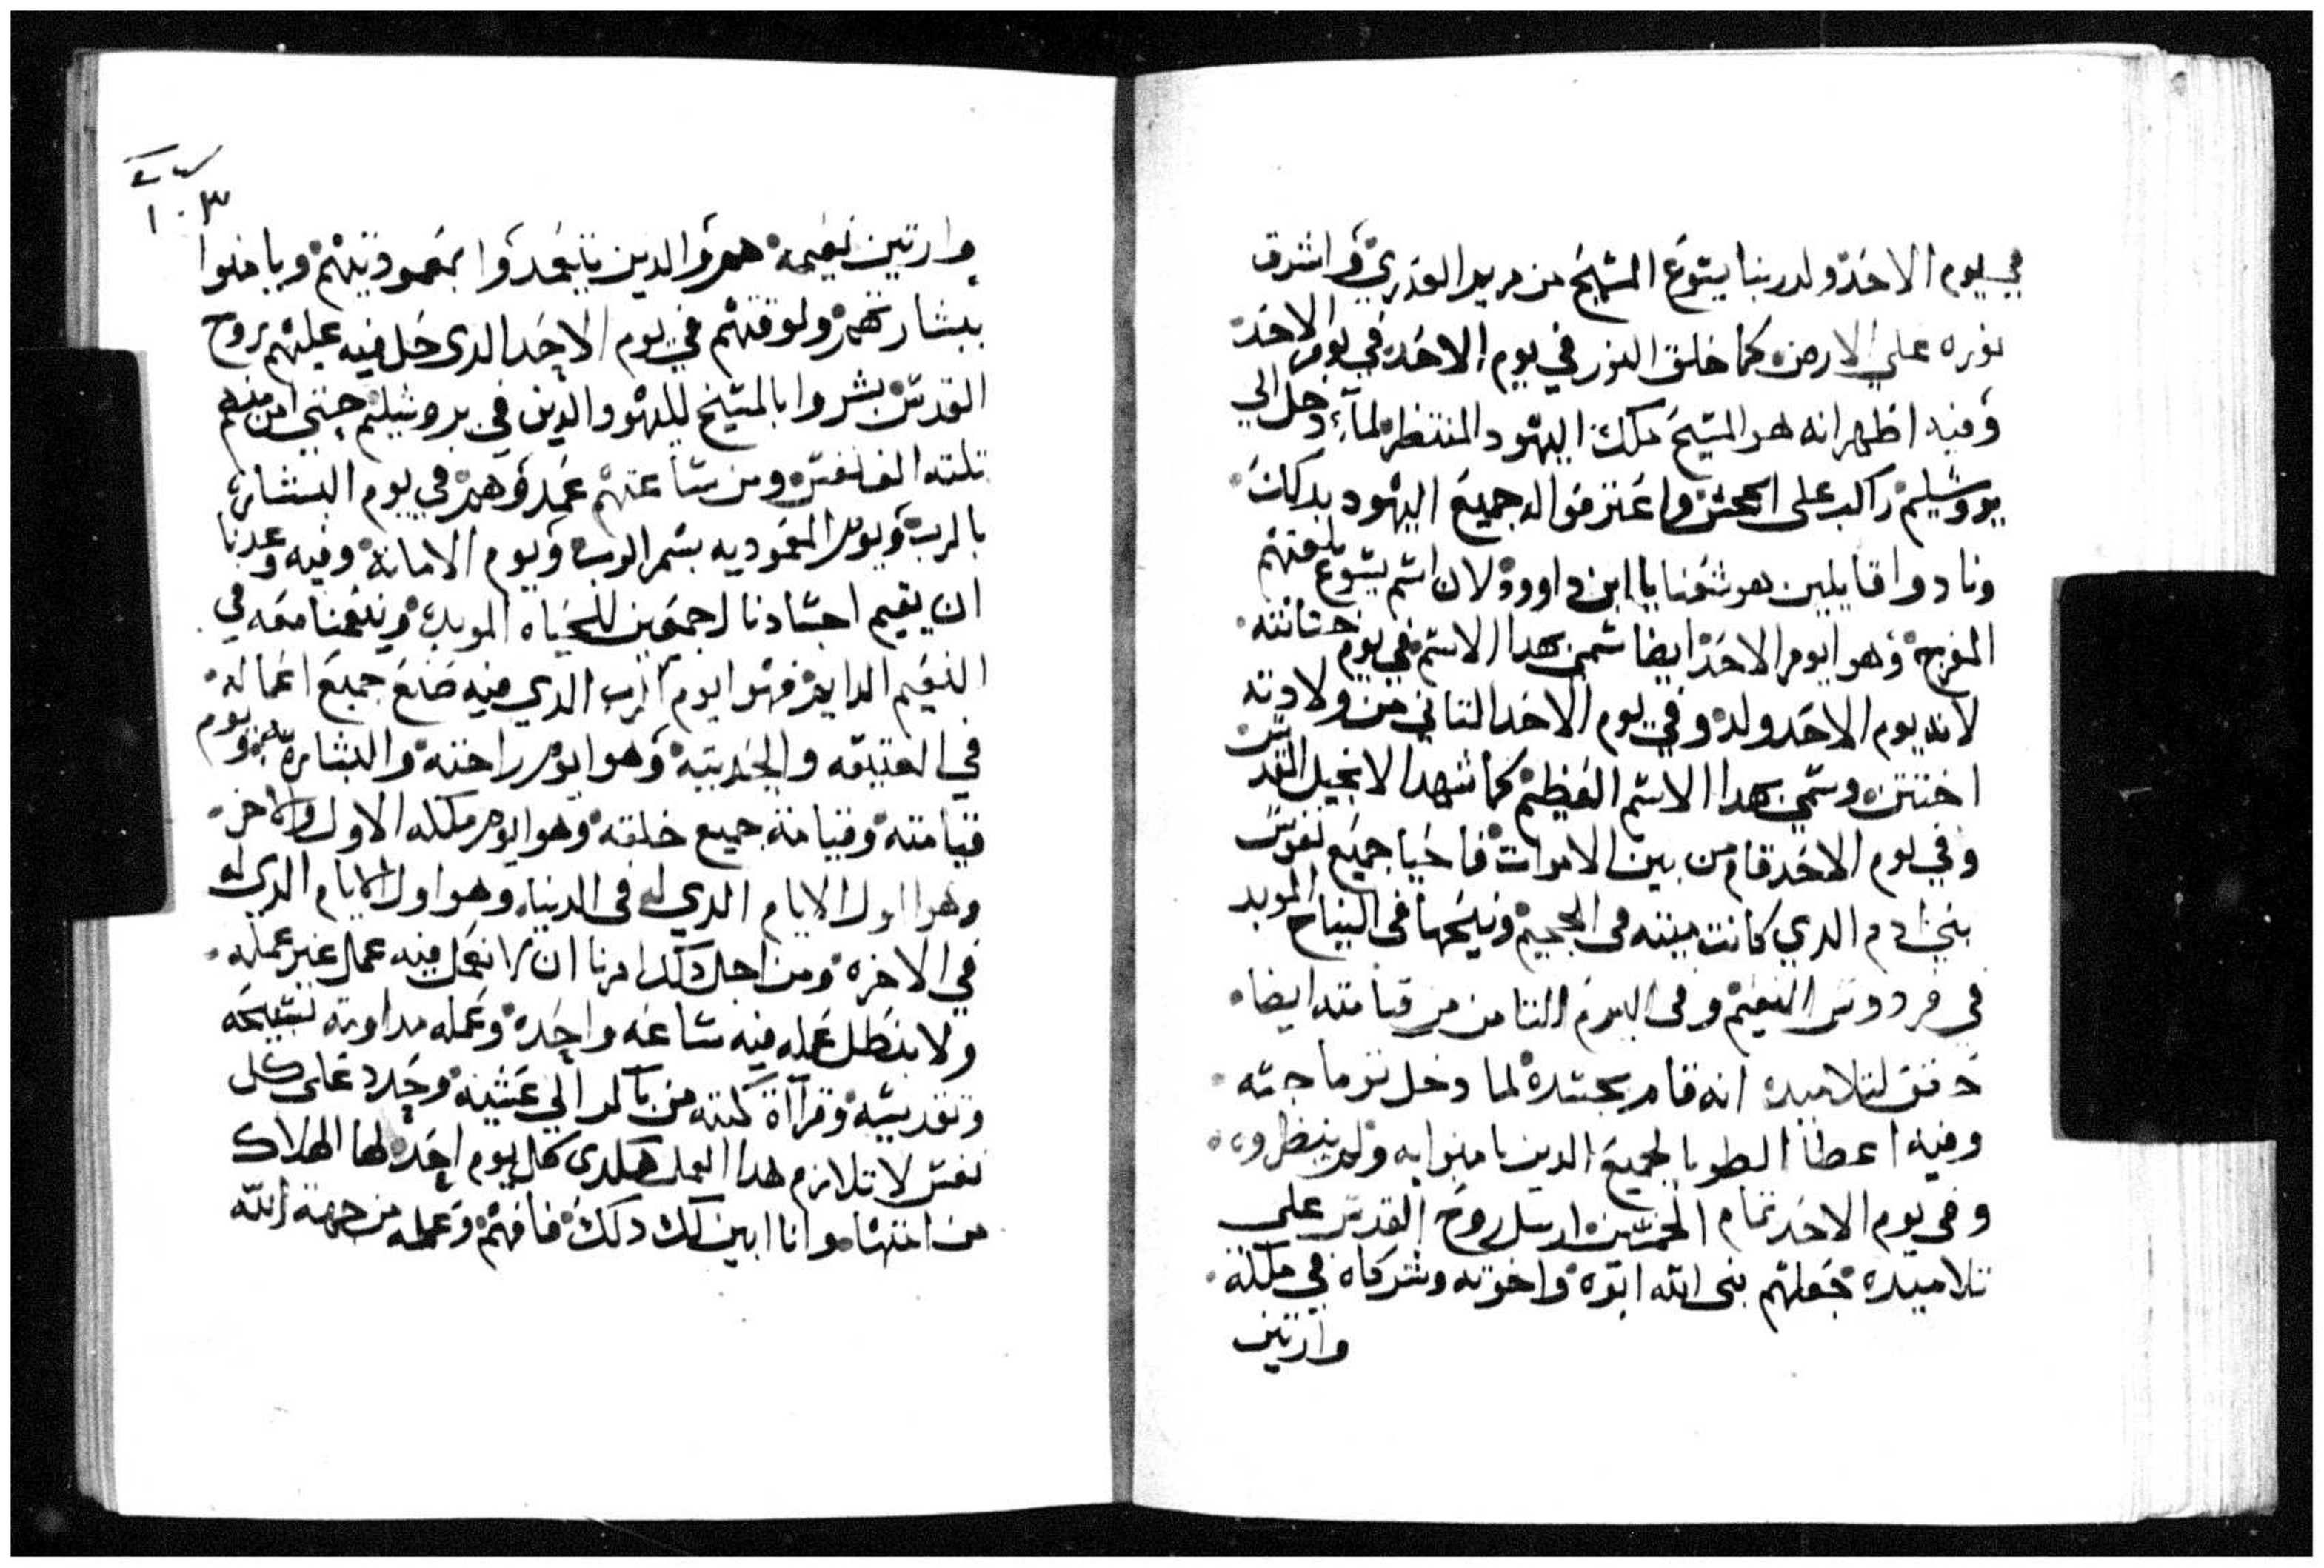 في يوم الاحد ولد ربنا يسوع المسيح من مريم العدري واشرق
نوره علي الارض كما خلق النور في يوم الاحد في يوم الاحد
وفيه اظهر انه هو المسيح ملك اليهود المنتظر لما دخل الي
يروشليم راكب على الجحش واعترفوا له جميع اليهود بدلك
ونادوا قايلين هوشعنا يا ابن داوود لان اسم يسوع بلغتهم
المفرج وهو ايوم الاحد ايضا سمي بهدا الاسم في يوم ختانته
لانه يوم الاحد ولد وفي يوم الاحد التاني من ولادته
اختتن وسمي بهدا الاسم العظيم كما شهد الانجيل القدس
وفي يوم الاحد قام من بين الاموات فاحيا جميع نفوس
بني ادم الدي كانت ميته في الجحيم ونيحها في النياح الموبد
في فردوس النعيم وفي اليوم التامن من قيامته ايضا
حقق لتلاميده انه قام بجسده لما دخل توما جسه
وفيه اعطا الطوبا لجميع الدين امنوا به ولم ينظروه
وفي يوم الاحد تمام الخمسين ارسل روح القدس علي
تلاميده جعلهم بني الله ابوه واخوته وشركاه في ملكه
وارتين
١٠٣
وارتين نعيمه هم والدين يتعمدوا بمعموديتهم ويامنوا
ببشارتهم ولوقتهم في يوم الاحد الدي حل فيه عليهم روح
القدس بشروا بالمسيح لليهود الدين في يروشليم حتي امن منهم
تلته الف نفس ومن ساعتهم عمدوهم في يوم البشاره
بالرب ويوم المعموديه بسم الرب ويوم الامانة وفيه وعدنا
ان يقيم اجسادنا اجمعين للحياه الموبده وينعمنا معه في
النعيم الدايم فهوا يوم الرب الدي فيه صنع جميع اعماله
في العتيقه والحديته وهو ايوم راحته والبشارة به ويوم
قيامته وقيامة جميع خلقته وهو ايوم ملكه الاول والاخر
وهوا اول الايام الدي له في الدنيا وهو اول الايام الدي له
في الاخره ومن اجل دلك امرنا ان لا نعمل فيه عمل غير عمله
ولا نبطل عمله فيه ساعه واحده وعمله مداومة تسبيحه
وتقديسه وقرآة كتبه من باكر الي عشية وحدد على كل
نفس لا تلازم هدا العمل هكدي كل يوم احد لها الهلاك
من انتها وانا ابين لك دلك فافهم وعمله من جهة الله